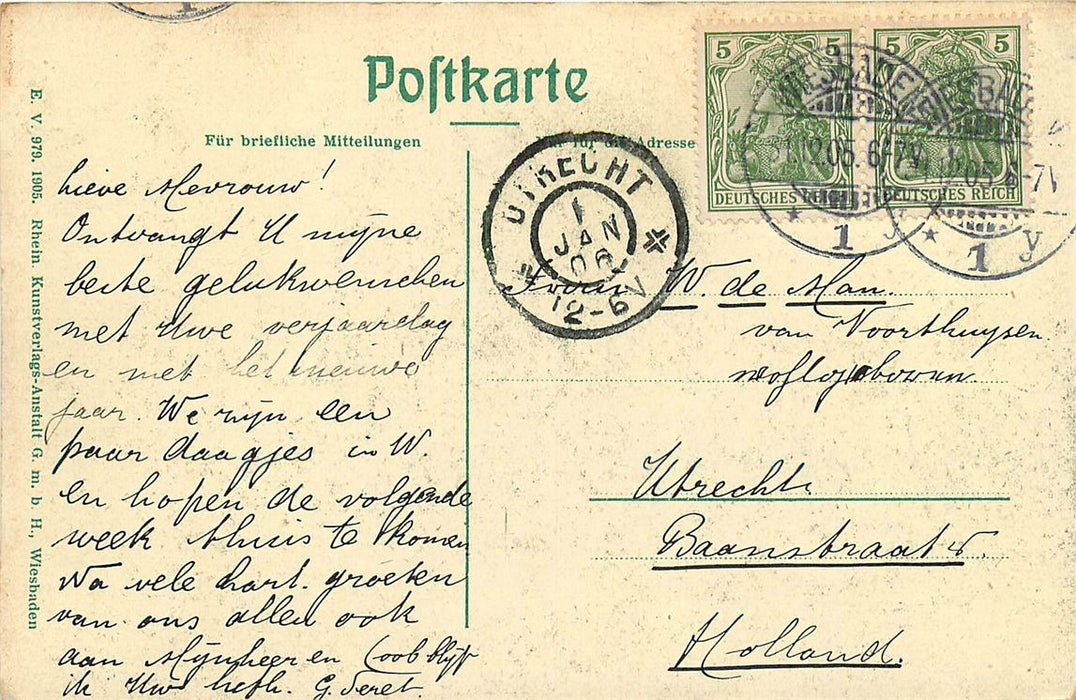 Postkarte
Für briefliche Mitteilungen
für die Adresse
E. V. 979. 1905. Rhein. Kunstverlags-Anstalt G. m. b. H., Wiesbaden
5 5
DEUTSCHES REICH
5 5
DEUTSCHES REICH
WIESBADEN
12.05.6-7V
1
y
12.05.6-7V
1
y
UTRECHT
1
JAN
06
12-6V
lieve Mevrouw!
Ontvangt U mijne
beste gelukwenschen
met Uwe verjaardag
en met het nieuwe
jaar. We zijn een
paar daagjes in W.
en hopen de volgende
week thuis te komen
Na vele hart. groeten
van ons allen ook
aan Mijnheer en Coob blijf
ik Uwe liefh. G. Seret.
W. de Man.
van Voorthuysen
Utrecht.
Baanstraat
Holland.